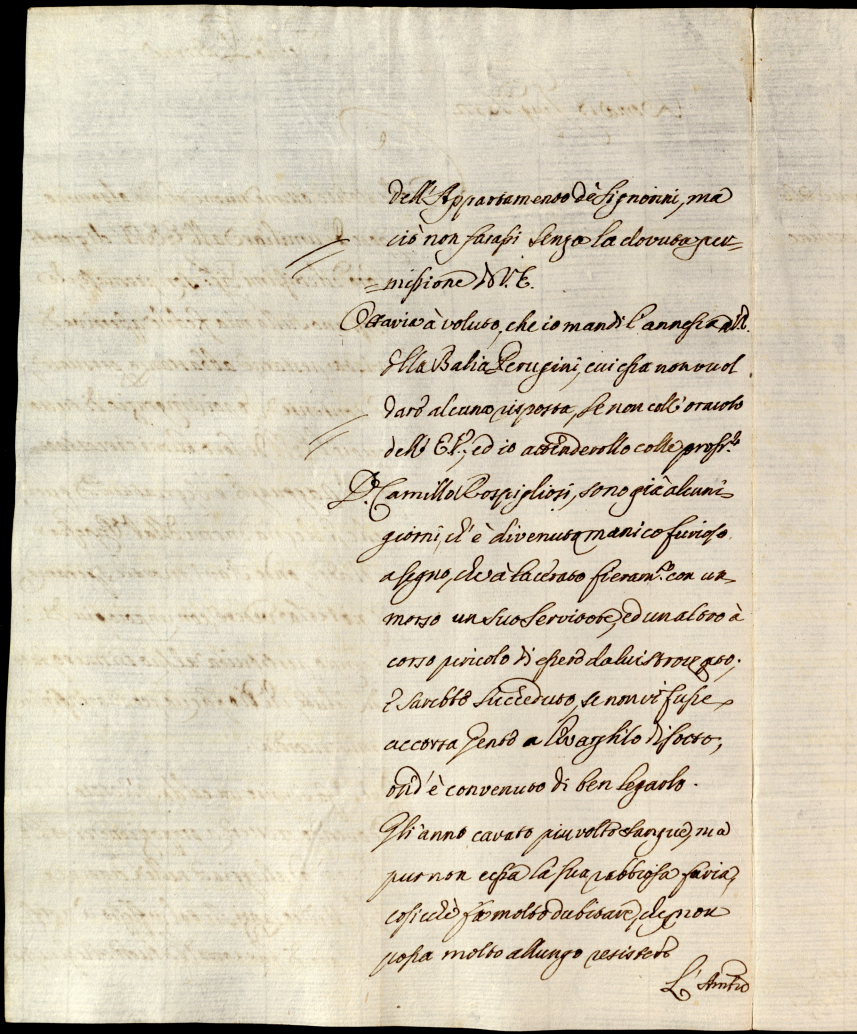 dell'Appartamento de Signorini, ma
ciò non farassi senza la dovuta per=
=missione di V. E.
Ottavia à voluto, che io mandi l'annessa
alla Balia Perugini, cui essa non vuol
dare alcuna risposta, se non coll'oracolo
dell'E. P.; ed io attenderollo colle pross.e
D. Camillo Rospigliosi, sono già alcuni
giorni, ch'è divenuto manico furioso
a segno, che à lacerato fieram.te con un
morso un suo Servitore, ed un altro à
corso pericolo di essere da lui strozzato;
E sarebbe succeduto, se non vi fusse
accorsa gente a levarglilo di sotto,
ond'è convenuto di ben legarlo.
Gli anno cavato più volte sangue, ma
pur non cessa la sua rabbiosa furia,
cosicchè fà molto dubitare, che non
possa molto allungo resistere
L'Amb.re